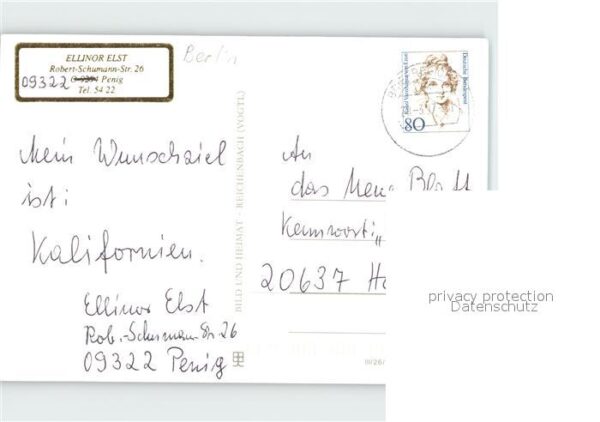 ELLINOR ELST
Robert-Schumann-Str. 26
09322 Penig
Tel. 54 22
Berlin
Deutsche Bundespost
80
Mein Wunschziel
ist:
Kalifornien.
Ellinor Elst
Rob.-Schumann-Str. 26
09322 Penig
BILD UND HEIMAT · REICHENBACH (VOGTL)
An
das Neue Blatt
Kennwort: „
20637 Ha
III/26/
privacy protection
Datenschutz